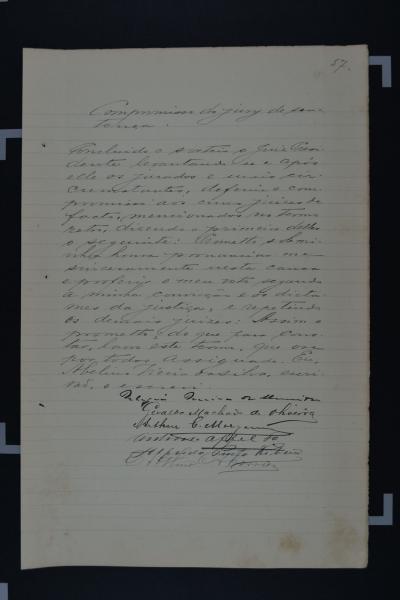 57.
Compromisso do jury de sen-
tença.
Concluido o sorteio o Juiz Presi-
dente levantando-se e após
elle os jurados e mais cir-
cumstantes, deferiu o com-
promisso aos cinco juizes de
facto, mencionados no termo
retro, dizendo o primeiro delles
o seguinte: Prometto, sob mi-
nha honra pronunciar-me
sinceramente nesta causa
e proferir o meu voto segundo
a minha convicção e os dicta-
mes da justiça, e repetindo
os demais juizes: Assim o
prometto; do que para cons-
tar, lavro este termo, que vae
por todos assignado. Eu,
escri-
vão, o escrevi.
Pereira
Machado de Oliveira
Arthur C.
Appel
Pinto Ribeiro